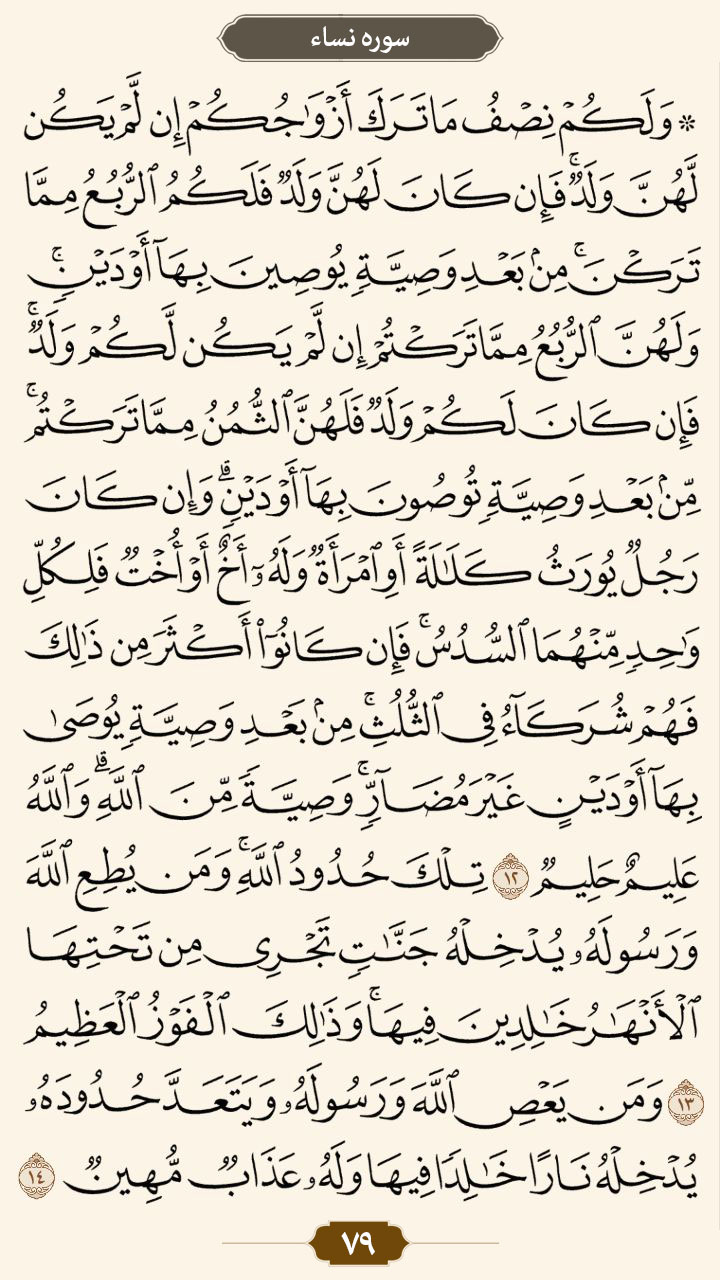 سوره نساء
۞ وَلَكُمۡ نِصۡفُ مَا تَرَكَ أَزۡوَٰجُكُمۡ إِن لَّمۡ يَكُن
لَّهُنَّ وَلَدٞۚ فَإِن كَانَ لَهُنَّ وَلَدٞ فَلَكُمُ ٱلرُّبُعُ مِمَّا
تَرَكۡنَۚ مِنۢ بَعۡدِ وَصِيَّةٖ يُوصِينَ بِهَآ أَوۡ دَيۡنٖۚ
وَلَهُنَّ ٱلرُّبُعُ مِمَّا تَرَكۡتُمۡ إِن لَّمۡ يَكُن لَّكُمۡ وَلَدٞۚ
فَإِن كَانَ لَكُمۡ وَلَدٞ فَلَهُنَّ ٱلثُّمُنُ مِمَّا تَرَكۡتُمۚ
مِّنۢ بَعۡدِ وَصِيَّةٖ تُوصُونَ بِهَآ أَوۡ دَيۡنٖۗ وَإِن كَانَ
رَجُلٞ يُورَثُ كَلَٰلَةً أَوِ ٱمۡرَأَةٞ وَلَهُۥٓ أَخٌ أَوۡ أُخۡتٞ فَلِكُلِّ
وَٰحِدٖ مِّنۡهُمَا ٱلسُّدُسُۚ فَإِن كَانُوٓاْ أَكۡثَرَ مِن ذَٰلِكَ
فَهُمۡ شُرَكَآءُ فِي ٱلثُّلُثِۚ مِنۢ بَعۡدِ وَصِيَّةٖ يُوصَىٰ
بِهَآ أَوۡ دَيۡنٍ غَيۡرَ مُضَآرّٖۚ وَصِيَّةٗ مِّنَ ٱللَّهِۗ وَٱللَّهُ
عَلِيمٌ حَلِيمٞ ١٢ تِلۡكَ حُدُودُ ٱللَّهِۚ وَمَن يُطِعِ ٱللَّهَ
وَرَسُولَهُۥ يُدۡخِلۡهُ جَنَّٰتٖ تَجۡرِي مِن تَحۡتِهَا
ٱلۡأَنۡهَٰرُ خَٰلِدِينَ فِيهَاۚ وَذَٰلِكَ ٱلۡفَوۡزُ ٱلۡعَظِيمُ
١٣ وَمَن يَعۡصِ ٱللَّهَ وَرَسُولَهُۥ وَيَتَعَدَّ حُدُودَهُۥ
يُدۡخِلۡهُ نَارًا خَٰلِدٗا فِيهَا وَلَهُۥ عَذَابٞ مُّهِينٞ ١٤
٧٩